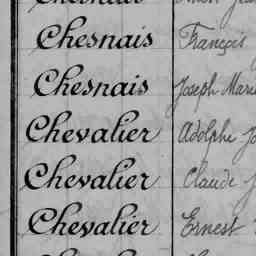 Chesnais François
Chesnais Joseph Marie
Chevalier Adolphe
Chevalier Claude
Chevalier Ernest